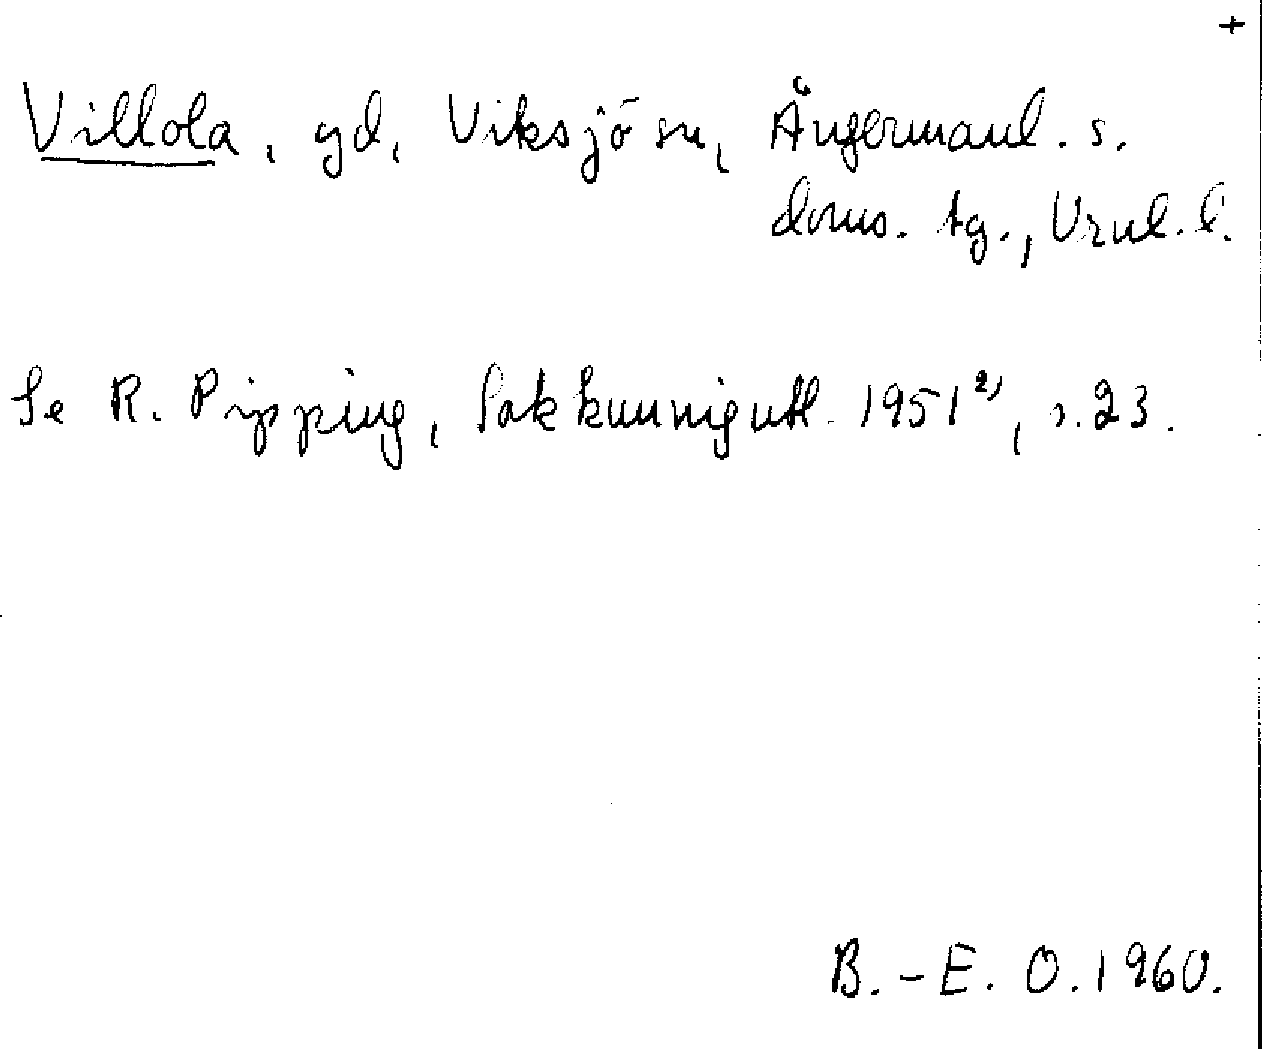 +
Villola, gd, Viksjö sn, Ångermanl. s.
doms. tg., Vrnl. l.
Se R. Pipping, Sakkunnigutl. 1951²⁾, s. 23.
B.-E. O. 1960.